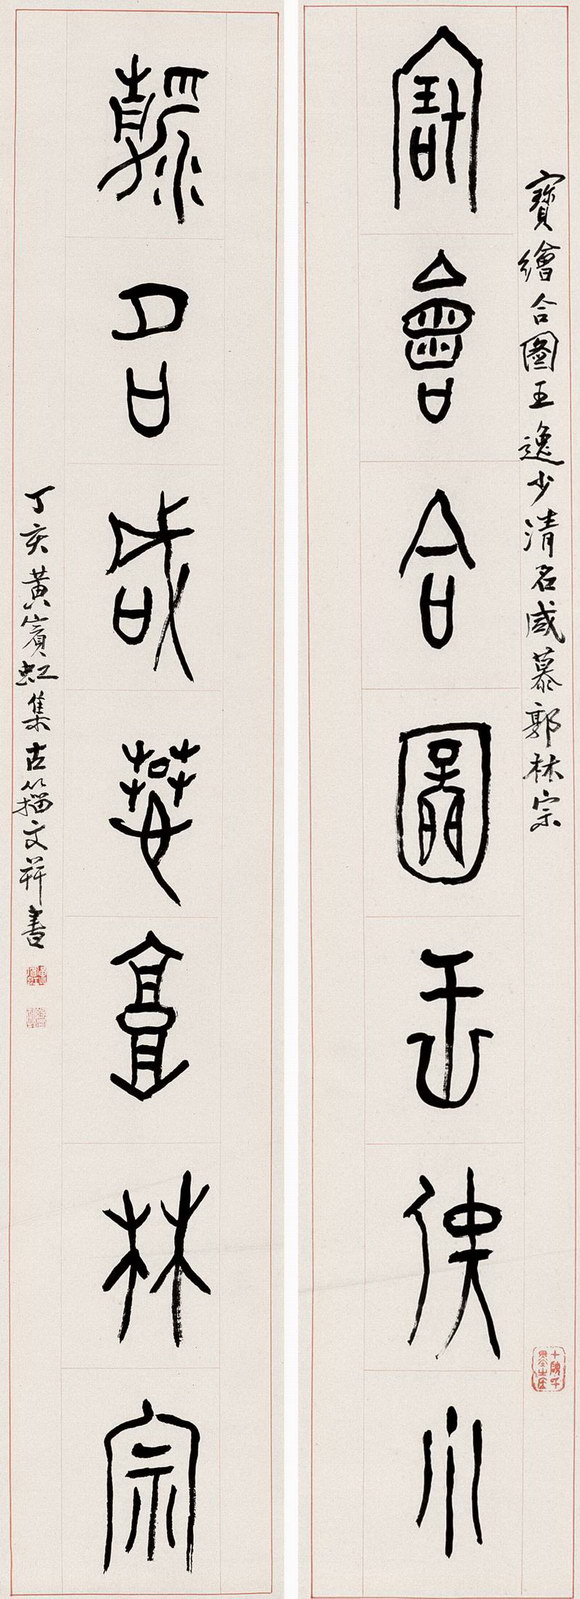 寶繪合圖王逸少清名咸慕郭林宗
寶會合圖王佚少
清名咸慕郭林宗
丁亥黃賓虹集古籀文并書